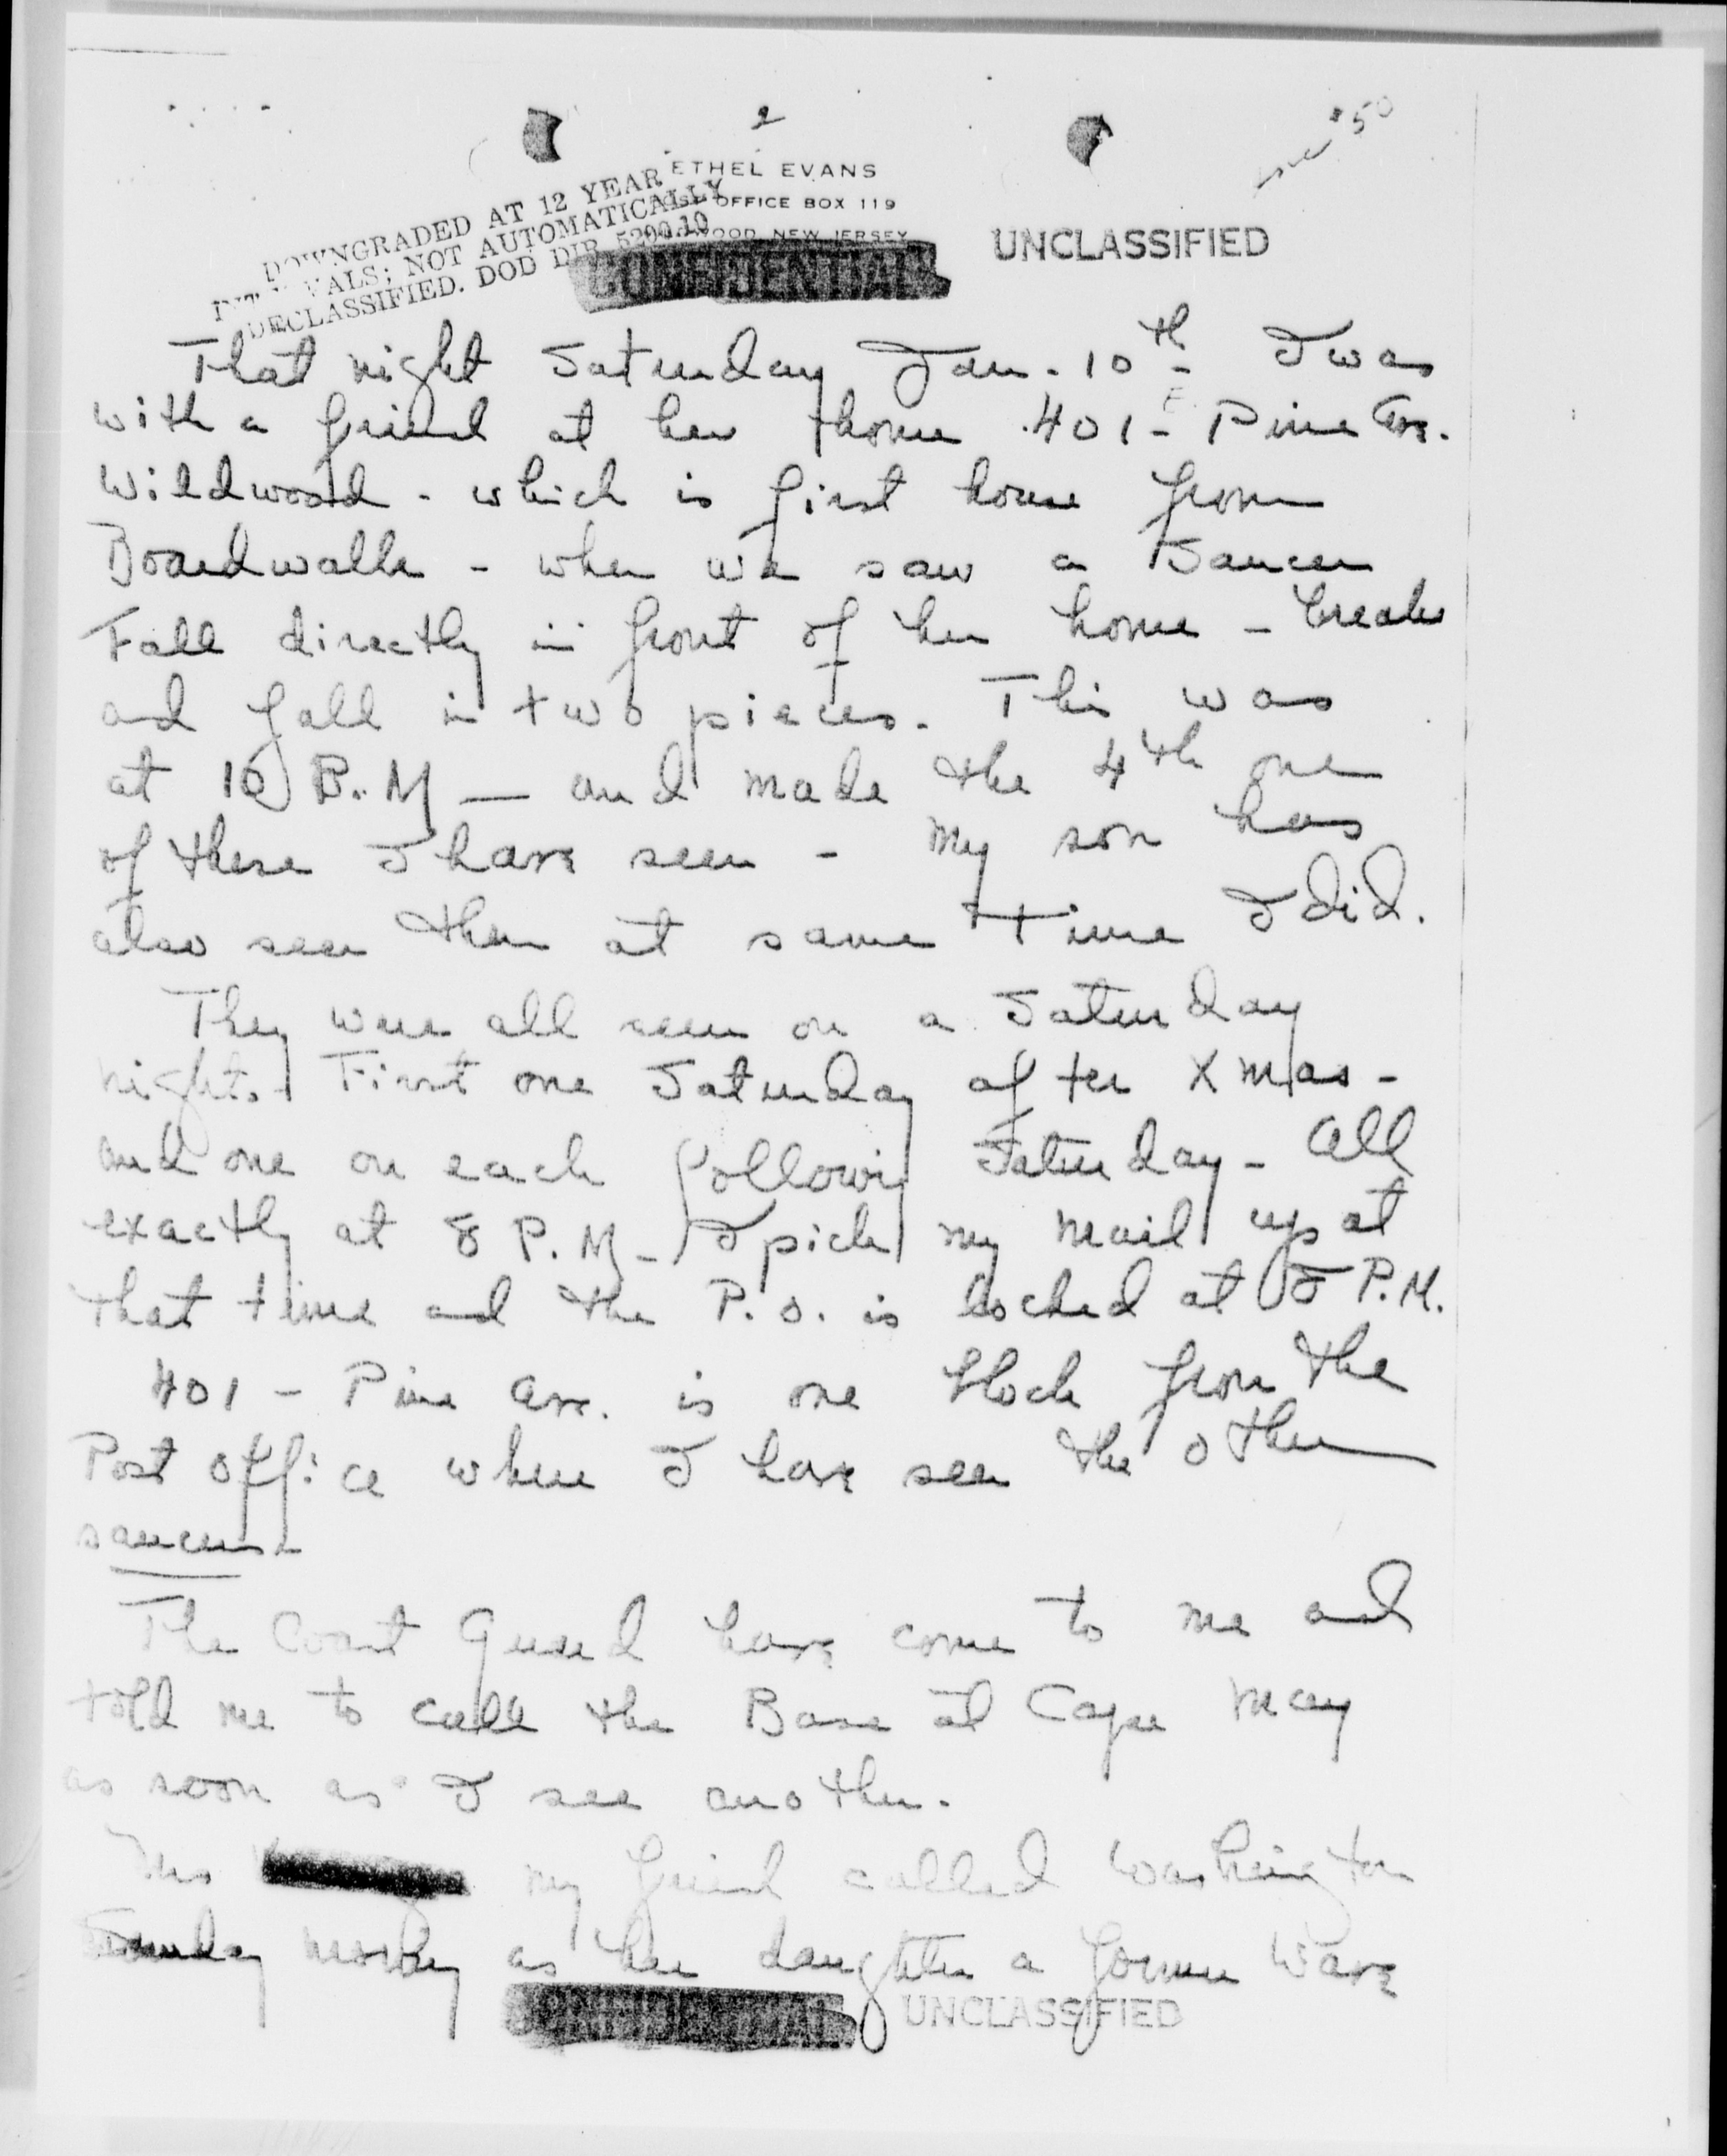 2
ETHEL EVANS
OFFICE BOX 119
WOOD, NEW JERSEY
DOWNGRADED AT 12 YEAR
INTERVALS; NOT AUTOMATICALLY
DECLASSIFIED. DOD DIR 5200.10
CONFIDENTIAL
UNCLASSIFIED
That night Saturday Jan. 10th - I was
with a friend at her home 401 - Pine Ave.
Wildwood - which is first house from
Boardwalk - when we saw a Saucer
Fall directly in front of her home - break
and fall in two pieces. This was
at 10 P.M — and made the 4th one
of these I have seen - My son has
also seen them at same time I did.
They were all seen on a Saturday
night. First one Saturday after Xmas -
and one on each following Saturday - all
exactly at 8 P.M - I pick my mail up at
that time and the P.O. is locked at 8 P.M.
401 - Pine Ave. is one block from the
Post office where I have seen the other
saucers
The Coast Guard have come to me and
told me to call the Base at Cape May
as soon as I see another.
my friend called Washington
Sunday morning as her daughter a former Wave
CONFIDENTIAL
UNCLASSIFIED